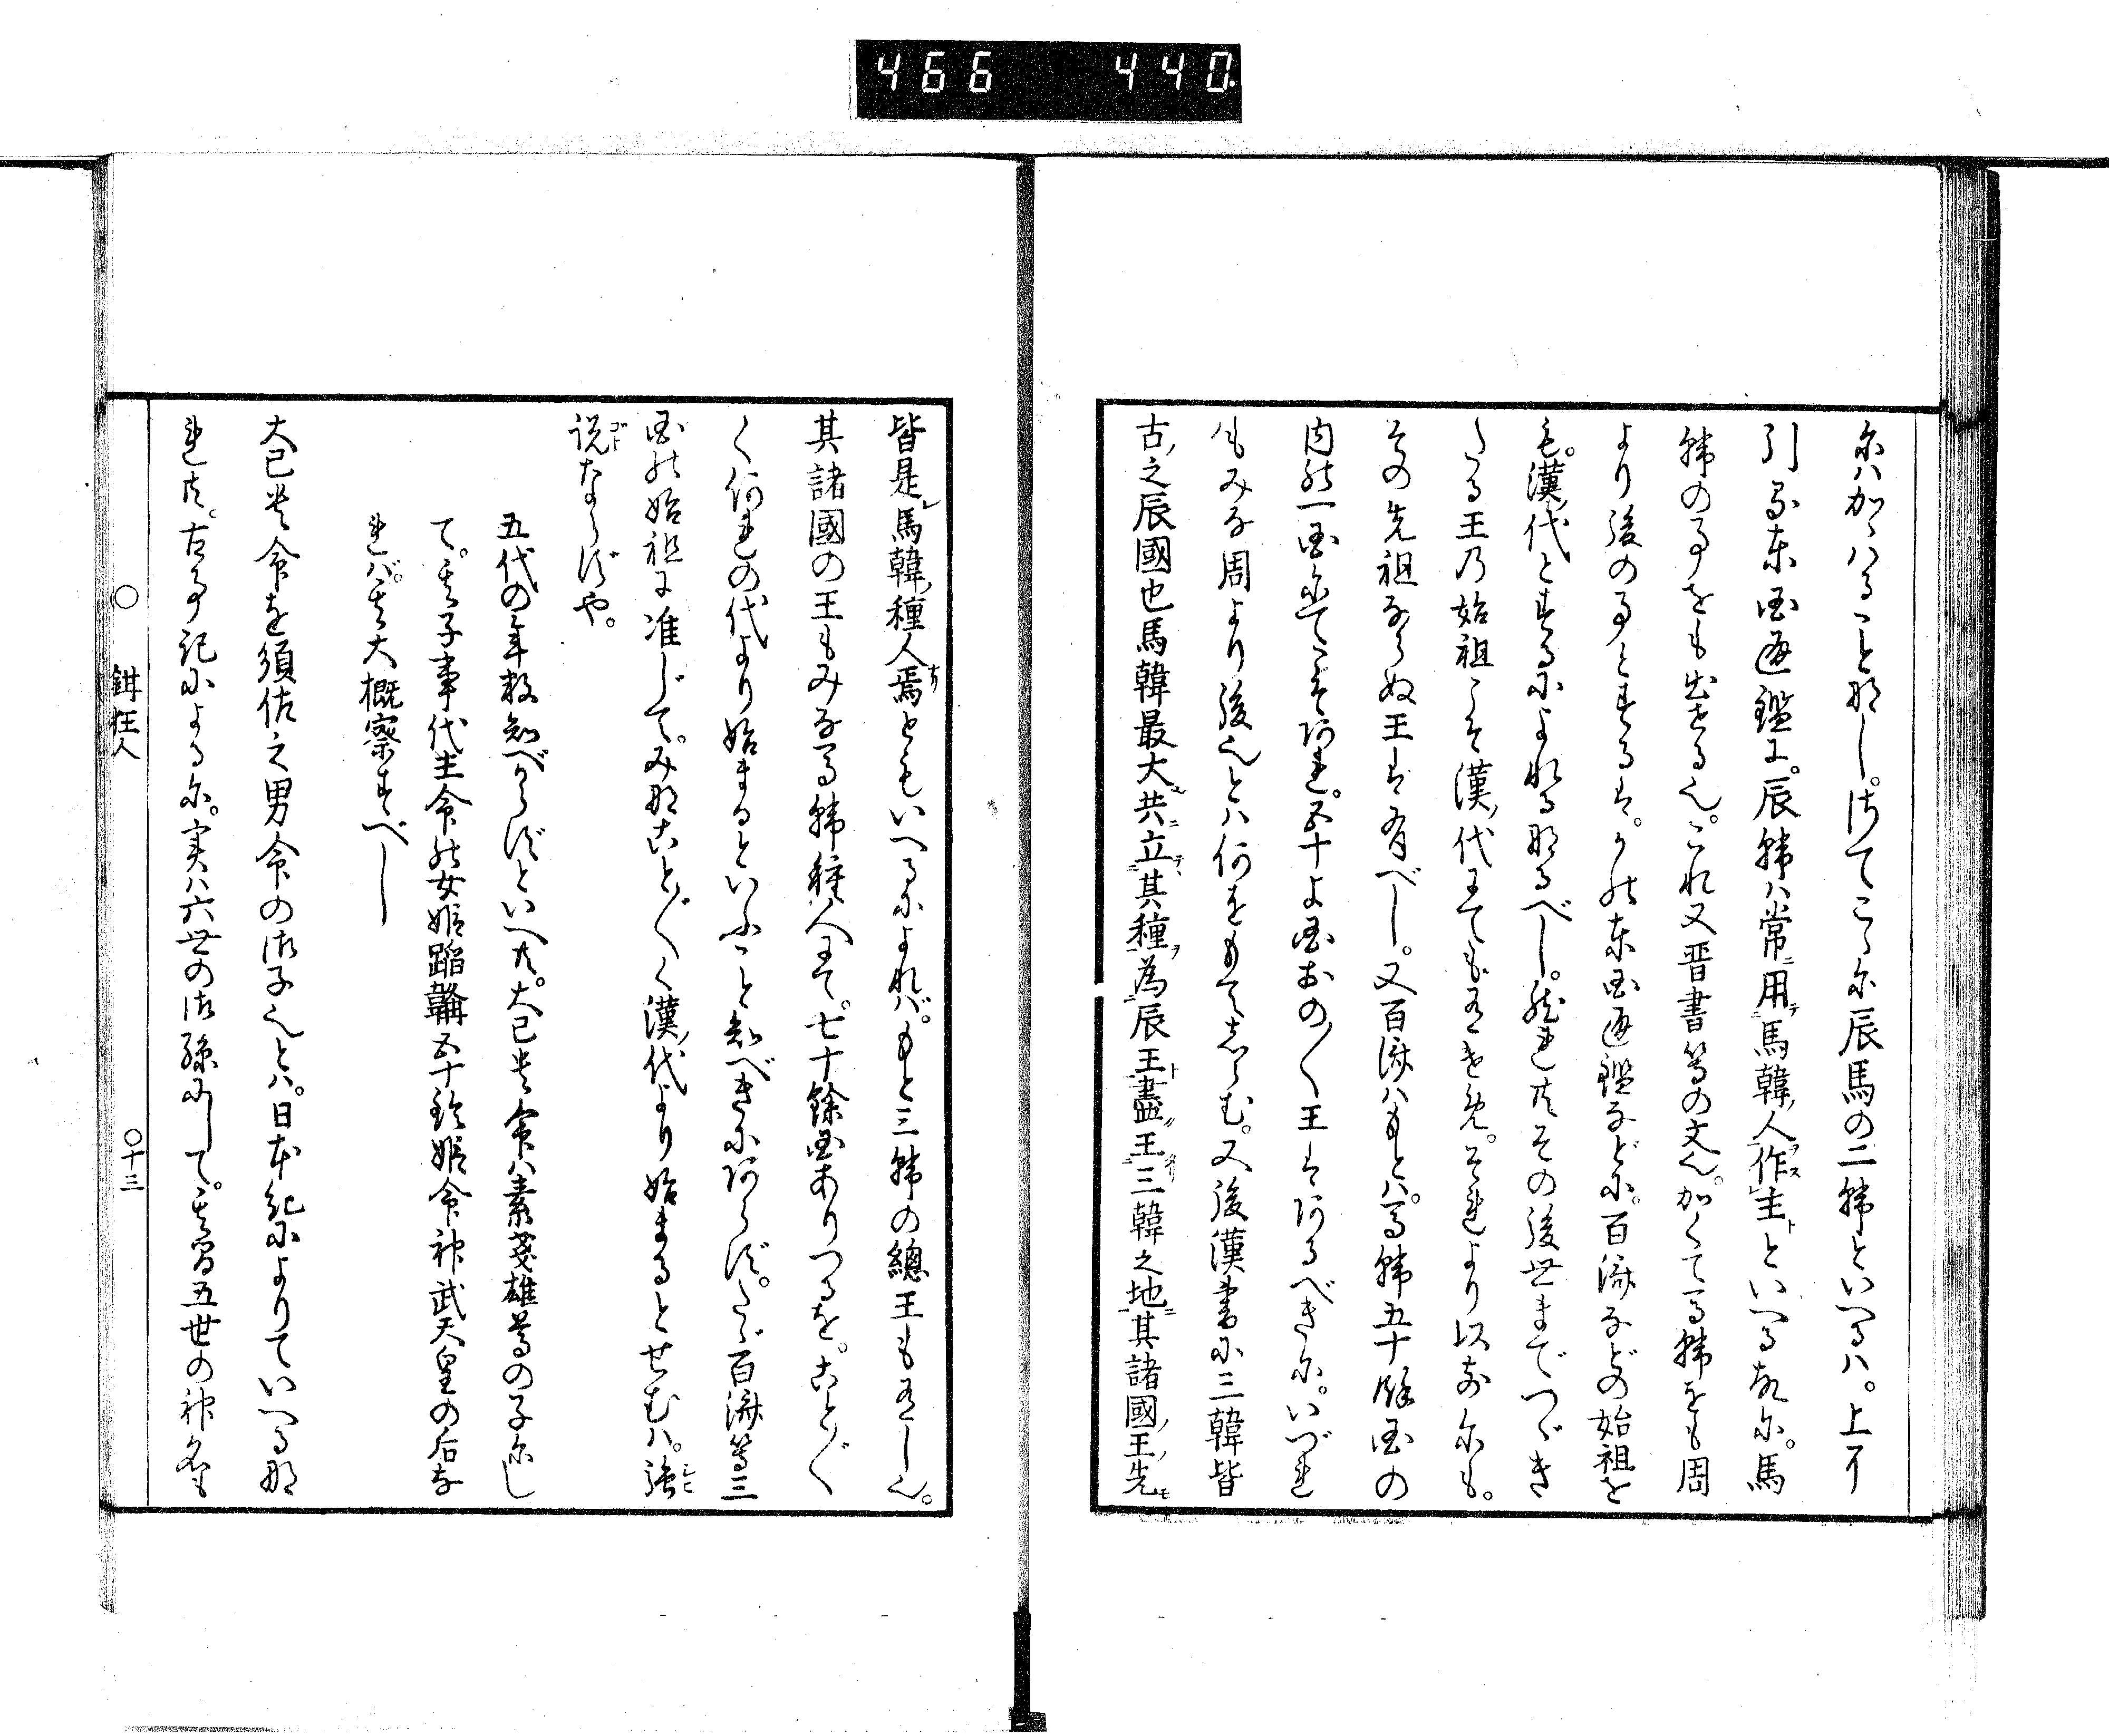 466 440
尓ハ加ゝハることなし。さてこゝ尓辰馬の二韓といへるハ。上に
引る東国通鑑に。辰韓ハ常用馬韓人作主といへる故尓。馬
韓の事をも出せる也。これ又晋書等の文也。かくて馬韓をも周
より後の事とするは。かの東国通鑑などに。百済などの始祖を
も。漢ノ代とするによれるなるべし。然れ共その後世までつゞき
たる王の始祖こそ漢ノ代にても有けめ。それより以前尓も。
その先祖ならぬ王は有べし。又百済ハもとハ。馬韓五十餘国の
内の一国尓てこそあれ。五十よ国おの〱王はあるべき尓。いづれ
ハもみな周より後也とハ何をもてしらむ。又後漢書に三韓皆
古ノ之辰國也馬韓最大共立其種為辰王盡王三韓之地其諸國ノ王ノ先
皆是馬韓ノ種人焉ともいへるによれバ。もと三韓の總王も有し也。
其諸國の王もみな馬韓種人にて。七十餘国ありつるを。こと〲
く何れの代より始まるといふこと知べきにあらず。たゞ百済等三
国の始祖に准じて。みなこと〲く漢ノ代より始まるとせむハ。強
説ならずや。
五代の年数知べからずといへ共。大已貴命ハ素戔雄尊の子尓し
て。其子事代主命の女姫蹈鞴五十鈴姫命神武天皇の后な
れバ。其大概察すべし
大已貴命を須佐之男命の御子也とハ。日本紀によりていへるな
れ共。古事記による尓。実ハ六世の御孫にして。其間五世の神名も
○ 鉗狂人 ○十三